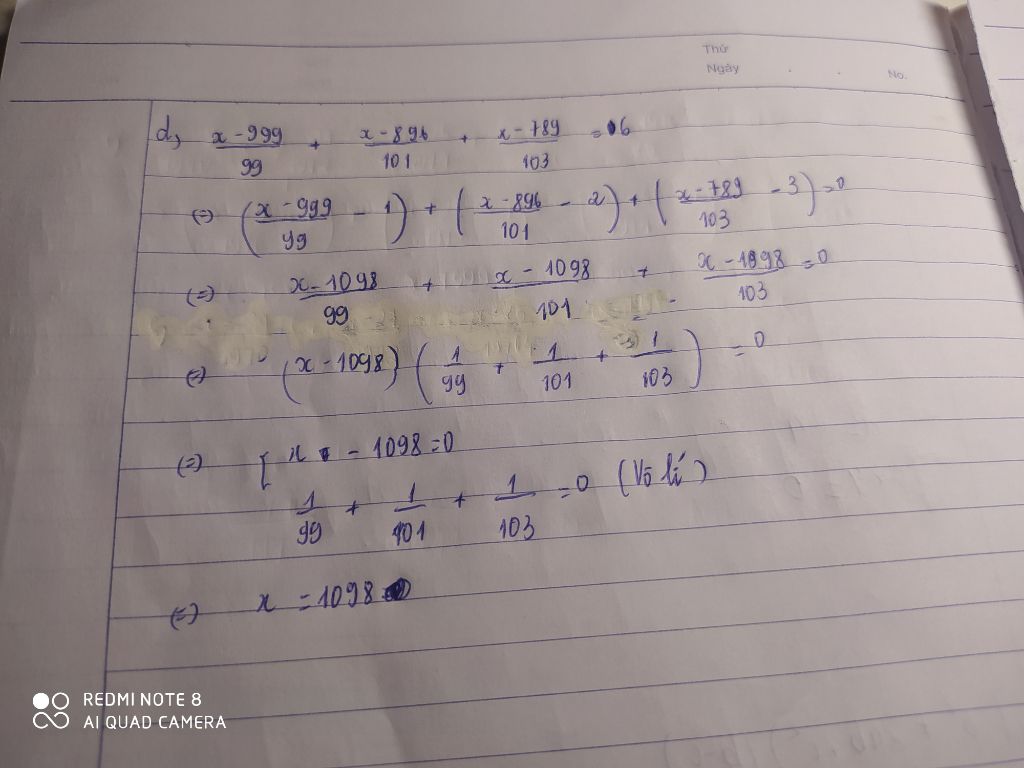 Thứ
Ngày . . No.
d, (x-999)/99 + (x-896)/101 + (x-789)/103 = 6
(=) ((x-999)/99 - 1) + ((x-896)/101 - 2) + ((x-789)/103 - 3) = 0
(=) (x-1098)/99 + (x-1098)/101 + (x-1098)/103 = 0
(=) (x-1098) (1/99 + 1/101 + 1/103) = 0
(=) [ x - 1098 = 0
1/99 + 1/101 + 1/103 = 0 (Vô lí)
(=) x = 1098
REDMI NOTE 8
AI QUAD CAMERA